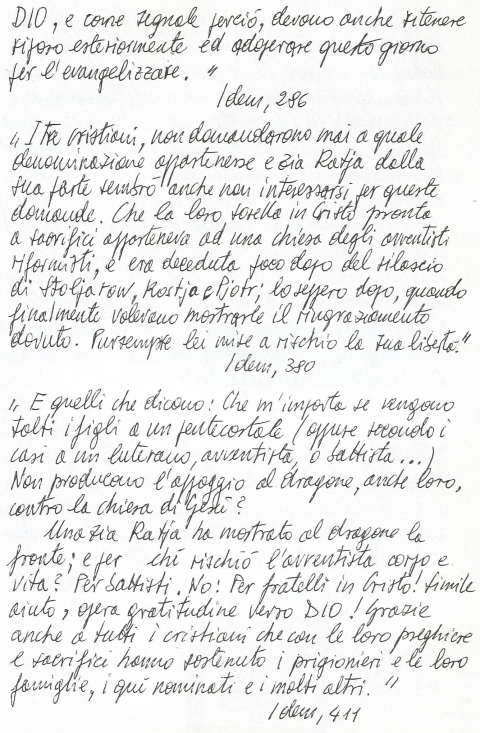 DIO, e come segnale perciò, devono anche ritenere
riposo esteriormente ed adoperare questo giorno
per l'evangelizzare. "
Idem, 286
„ I tre cristiani, non domandarono mai a quale
denominazione appartenesse e zia Katja dalla
sua parte sembrò anche non interessarsi per queste
domande. Che la loro sorella in Cristo pronta
a sacrifici apparteneva ad una chiesa degli avventisti
riformisti, e era deceduta poco dopo del rilascio
di Stoljarow, Kostja e Pjotr; lo seppero dopo, quando
finalmente volevano mostrarle il ringraziamento
dovuto. Pursempre lei mise a rischio la sua libertà."
Idem, 380
„ E quelli che dicono: Che m'importa se vengono
tolti i figli a un pentecostale (oppure secondo i
casi a un luterano, avventista, o battista...)
Non producono l'appoggio al dragone, anche loro,
contro la chiesa di Gesù?
Una zia Katja ha mostrato al dragone la
fronte; e per chi rischiò l'avventista corpo e
vita? Per battisti. No! Per fratelli in Cristo! Simile
aiuto, opera gratitudine verso DIO! Grazie
anche a tutti i cristiani che con le loro preghiere
e sacrifici hanno sostenuto i prigionieri e le loro
famiglie, i quì nominati e i molti altri. "
Idem, 411